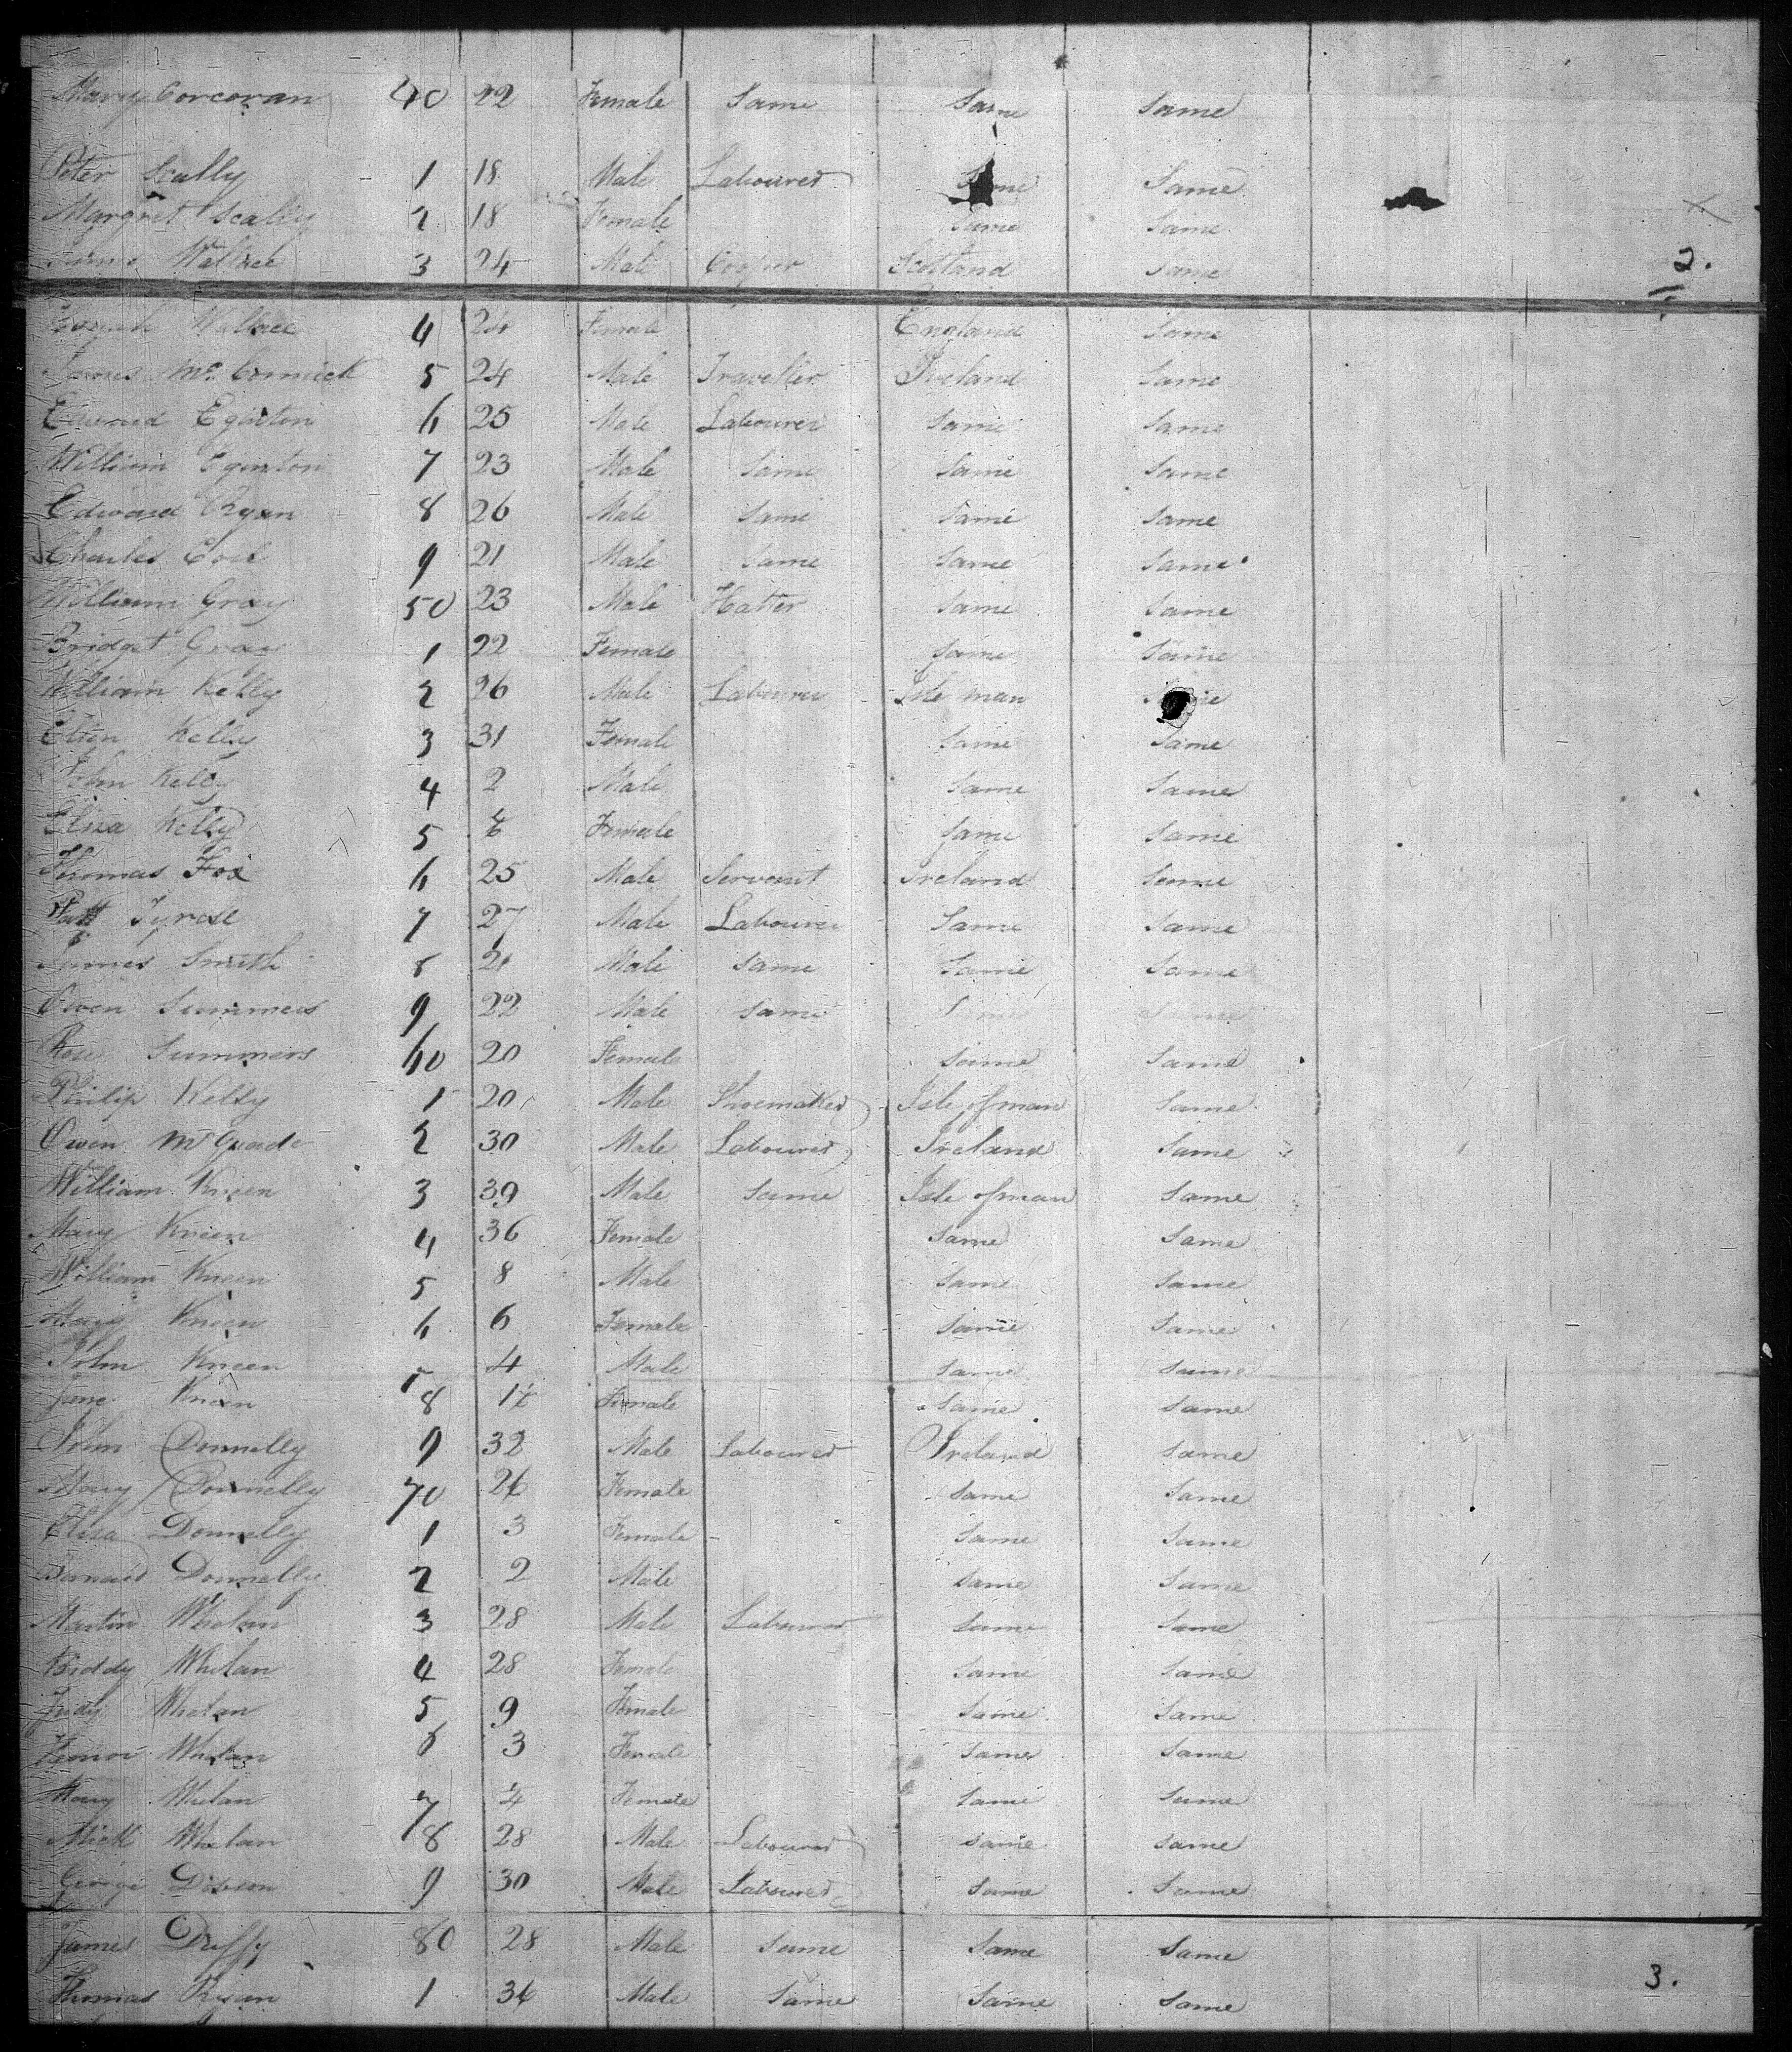 Mary Corcoran 40 22 Female Same Same Same
Peter Scally 1 18 Male Labourer Same Same
Margret Scally 2 18 Female Same Same
Wallace 3 24 Male Cooper Scotland Same
2.
Wallace 4 24 Female England Same
James Mc Cormick 5 24 Male Traveller Ireland Same
Egerton 6 25 Male Labourer Same Same
William Egerton 7 23 Male Same Same Same
Edward Ryan 8 26 Male Same Same Same
Charles 9 21 Male Same Same Same
William Gray 50 23 Male Hatter Same Same
Bridget Gray 1 22 Female Same Same
William Kelly 2 26 Male Labourer Isle man Same
Ellen Kelly 3 31 Female Same Same
John Kelly 4 2 Male Same Same
Eliza Kelly 5 Female Same Same
Thomas Fox 6 25 Male Servant Ireland Same
Patt 7 27 Male Labourer Same Same
James Smith 8 21 Male Same Same Same
Owen Summers 9 22 Male Same Same Same
Rose Summers 60 20 Female Same Same
Philip Kelly 1 20 Male Shoemaker Isle of man Same
Owen McQuade 2 30 Male Labourer Ireland Same
William Kneen 3 39 Male Same Isle of man Same
Mary Kneen 4 36 Female Same Same
William Kneen 5 8 Male Same Same
Mary Kneen 6 6 Female Same Same
John Kneen 7 4 Male Same Same
Jane Kneen 8 Female Same Same
John Donnelly 9 32 Male Labourer Ireland Same
Mary Donnelly 70 26 Female Same Same
Eliza Donnelly 1 3 Female Same Same
Donnelly 2 2 Male Same Same
Martin Whelan 3 28 Male Labourer Same Same
Biddy Whelan 4 28 Female Same Same
Judy Whelan 5 9 Female Same Same
Whelan 6 3 Female Same Same
Mary Whelan 7 Female Same Same
Mick Whelan 8 28 Male Labourer Same Same
George 9 30 Male Labourer Same Same
James Duffy 80 28 Male Same Same Same
Thomas 1 36 Male Same Same Same
3.